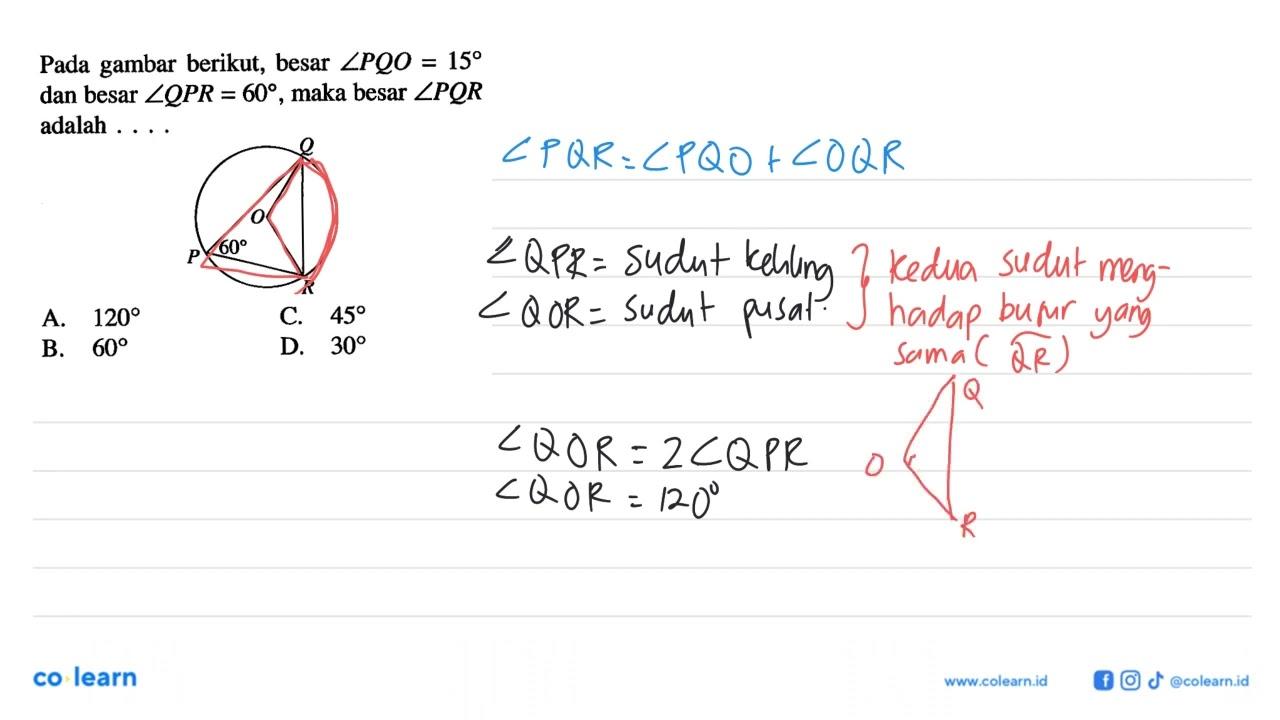 Pada gambar berikut, besar ∠PQO = 15°
dan besar ∠QPR = 60°, maka besar ∠PQR
adalah . . . .
Q
O
P 60°
R
A. 120° C. 45°
B. 60° D. 30°
∠PQR = ∠PQO + ∠OQR
∠QPR = sudut keliling
∠QOR = sudut pusat.
kedua sudut meng-
hadap busur yang
sama (QR)
∠QOR = 2∠QPR
∠QOR = 120°
Q
O
R
co learn
www.colearn.id @colearn.id